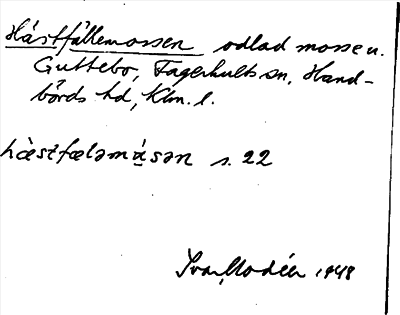 Hästfällemossen odlad mosse u.
Guttebo, Fagerhults sn, Hand-
börds hd, Klm. l.
hæstfæləmåsən s. 22
Ivar Modéer 1948